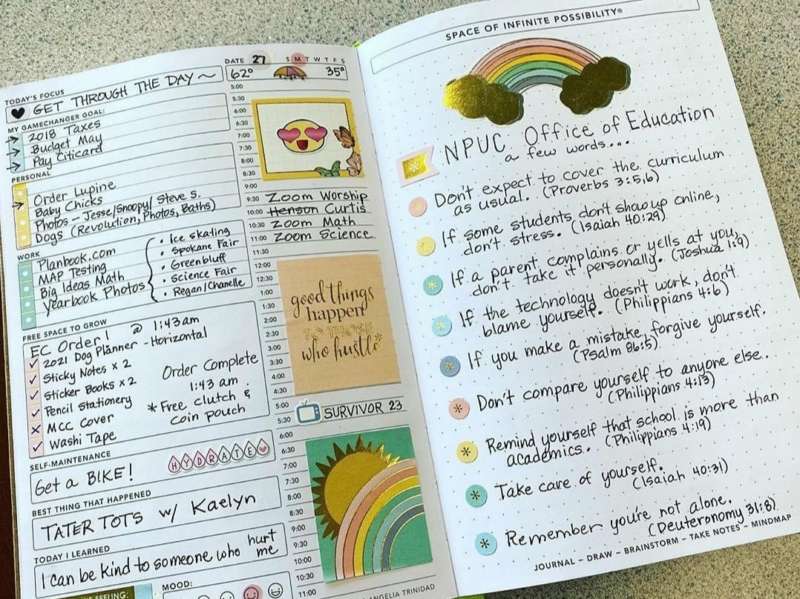 DATE 27 S M T W T F S
62° 35°
TODAY'S FOCUS
GET THROUGH THE DAY ~
MY GAMECHANGER GOAL:
2018 Taxes
Budget May
Pay Citicard
PERSONAL
Order Lupine
Baby Chicks
Photos - Jesse/Snoopy/Steve S.
Dogs (Revolution, Photos, Baths)
WORK
Planbook.com
MAP Testing
Big Ideas Math
Yearbook Photos
• Ice skating
• Spokane Fair
• Greenbluff
• Science Fair
• Regan/Chanelle
FREE SPACE TO GROW
EC Order 1 @ 1:43am
2021 Dog Planner - Horizontal
Sticky Notes x 2
Sticker Books x 2
Pencil Stationery
MCC Cover
Washi Tape
Order Complete
1:43 am
* Free clutch &
coin pouch
SELF-MAINTENANCE
HYDRATE
Get a BIKE!
BEST THING THAT HAPPENED
TATER TOTS w/ Kaelyn
TODAY I LEARNED
I can be kind to someone who hurt
me
FEELING:
MOOD:
5:00
5:30
6:00
6:30
7:00
7:30
8:00
8:30
9:00
9:30 Zoom Worship
10:00 Henson Curtis
10:30 Zoom Math
11:00 Zoom Science
11:30
12:00
12:30
1:00
1:30
2:00
2:30
3:00
3:30
4:00
4:30
good things
happen
TO THOSE
who hustle
5:00 SURVIVOR 23
5:30
6:00
6:30
7:00
7:30
8:00
8:30
9:00
9:30
10:00
10:30
11:00
ANGELIA TRINIDAD
SPACE OF INFINITE POSSIBILITY®
NPUC Office of Education
a few words...
Don't expect to cover the curriculum
as usual. (Proverbs 3:5,6)
If some students don't show up online,
don't stress. (Isaiah 40:29)
If a parent complains or yells at you,
don't take it personally. (Joshua 1:9)
If the technology doesn't work, don't
blame yourself. (Philippians 4:6)
If you make a mistake, forgive yourself.
(Psalm 86:5)
Don't compare yourself to anyone else..
(Philippians 4:13)
Remind yourself that school is more than
academics. (Philippians 4:19)
Take care of yourself.
(Isaiah 40:31)
Remember you're not alone.
(Deuteronomy 31:8)
JOURNAL – DRAW – BRAINSTORM – TAKE NOTES – MINDMAP